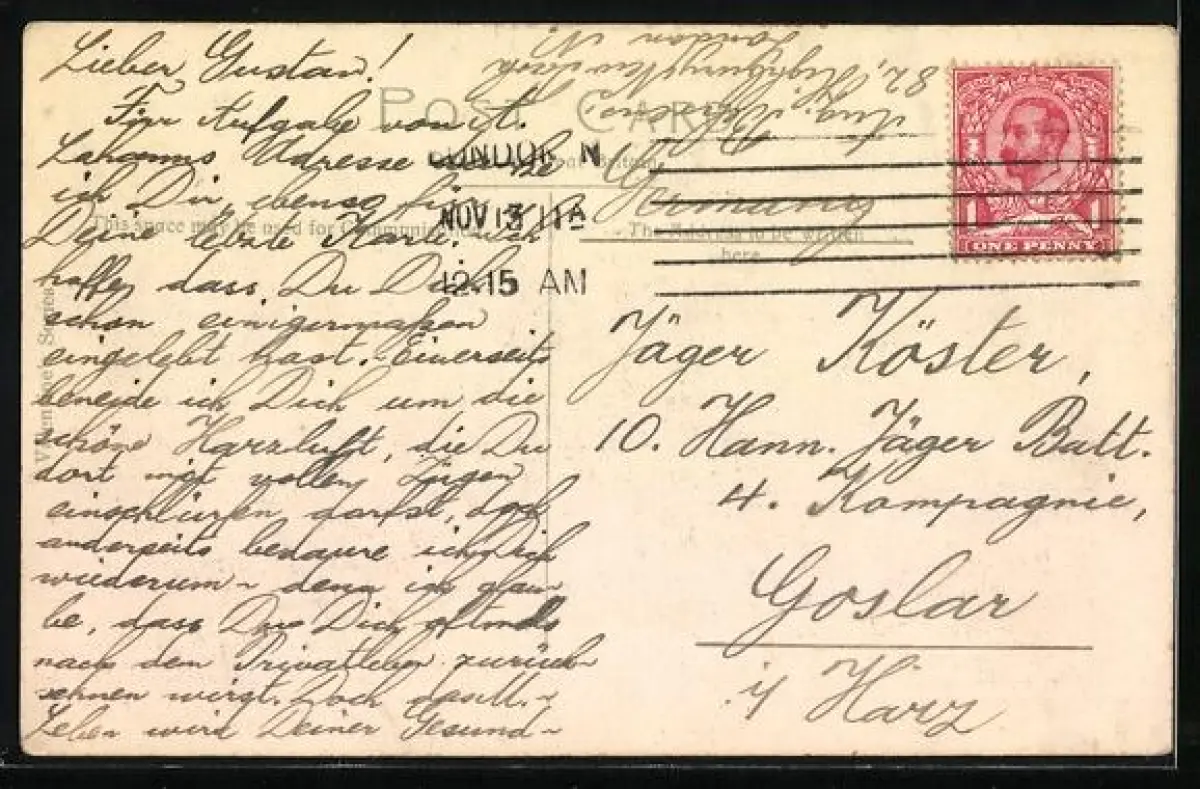 Lieber Gustav!
Für Aufgabe von A.
Adresse
ich Dir, ebenso für
Deine letzte Karte. Ich
hoffe, dass Du Dich
schon einigermaßen
eingelebt hast. Einerseits
beneide ich Dich um die
schöne Harzluft, die Du
dort mit vollen Zügen
einschlürfen darfst, doch
anderseits bedaure ich Dich
wiederum, denn ich glau-
be, dass Du Dich oftmals
nach dem Privatleben zurück-
sehnen wirst. Doch das Mil.-
Leben wird Deiner Gesund-
POST CARD
This space may be used for Communication
The Address to be written
here
LONDON N
NOV 13 11 A
12.15 AM
ONE PENNY
1 1
82, Highbury New Park
London N.
Germany
Jäger Köster,
10. Hann. Jäger Batt.
4. Kompagnie,
Goslar
i/ Harz